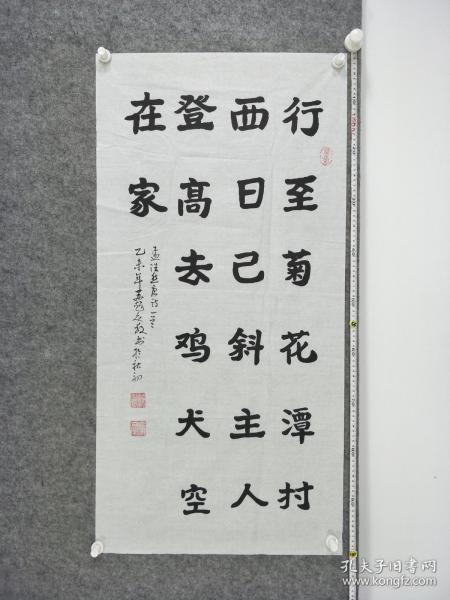 行至菊花潭村
西日已斜主人
登高去鸡犬空
在家
孟浩然唐诗一首
孔夫子旧书网
www.kongfz.com